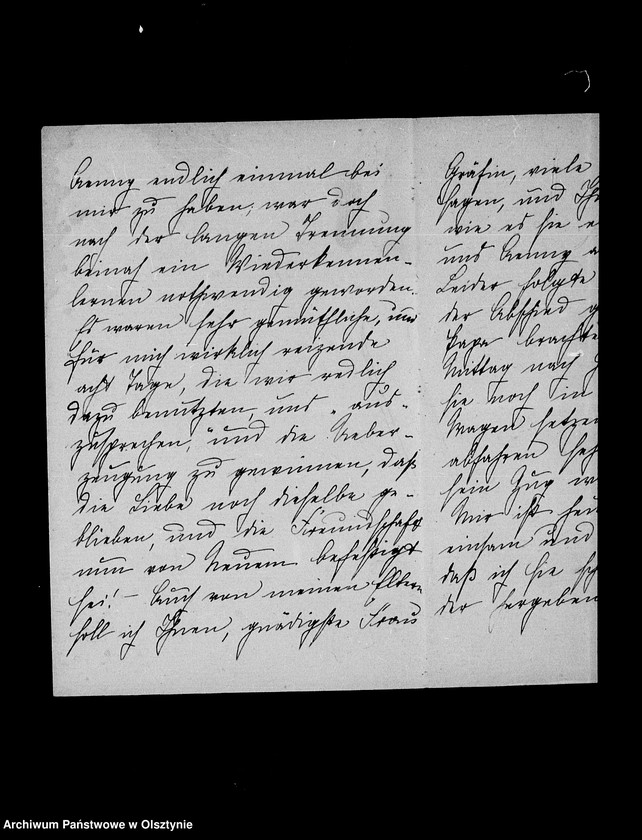 Aenny endlich einmal bei
mir zu haben, war doch
nach der langen Trennung
beinah ein Wiederkennen-
lernen nothwendig geworden.
Es waren sehr gemüthliche, und
für mich wirklich reizende
acht Tage, die wir redlich
dazu benutzten, uns „aus-
zusprechen," und die Ueber-
zeugung zu gewinnen, daß
die Liebe noch dieselbe ge-
blieben, und die Freundschaft
nun von Neuem befestigt
sei! – Auch von meinen Eltern
soll ich Ihnen, gnädigste Frau
Gräfin, viele
sagen, und
wie es sie
und Aenny
Leider folgte
der Abschied
Papa brachte
Mittag nach
sie noch in
Wagen setzen
abfahren
sein Zug
Mir ist
einsam und
daß ich sie
der
Archiwum Państwowe w Olsztynie